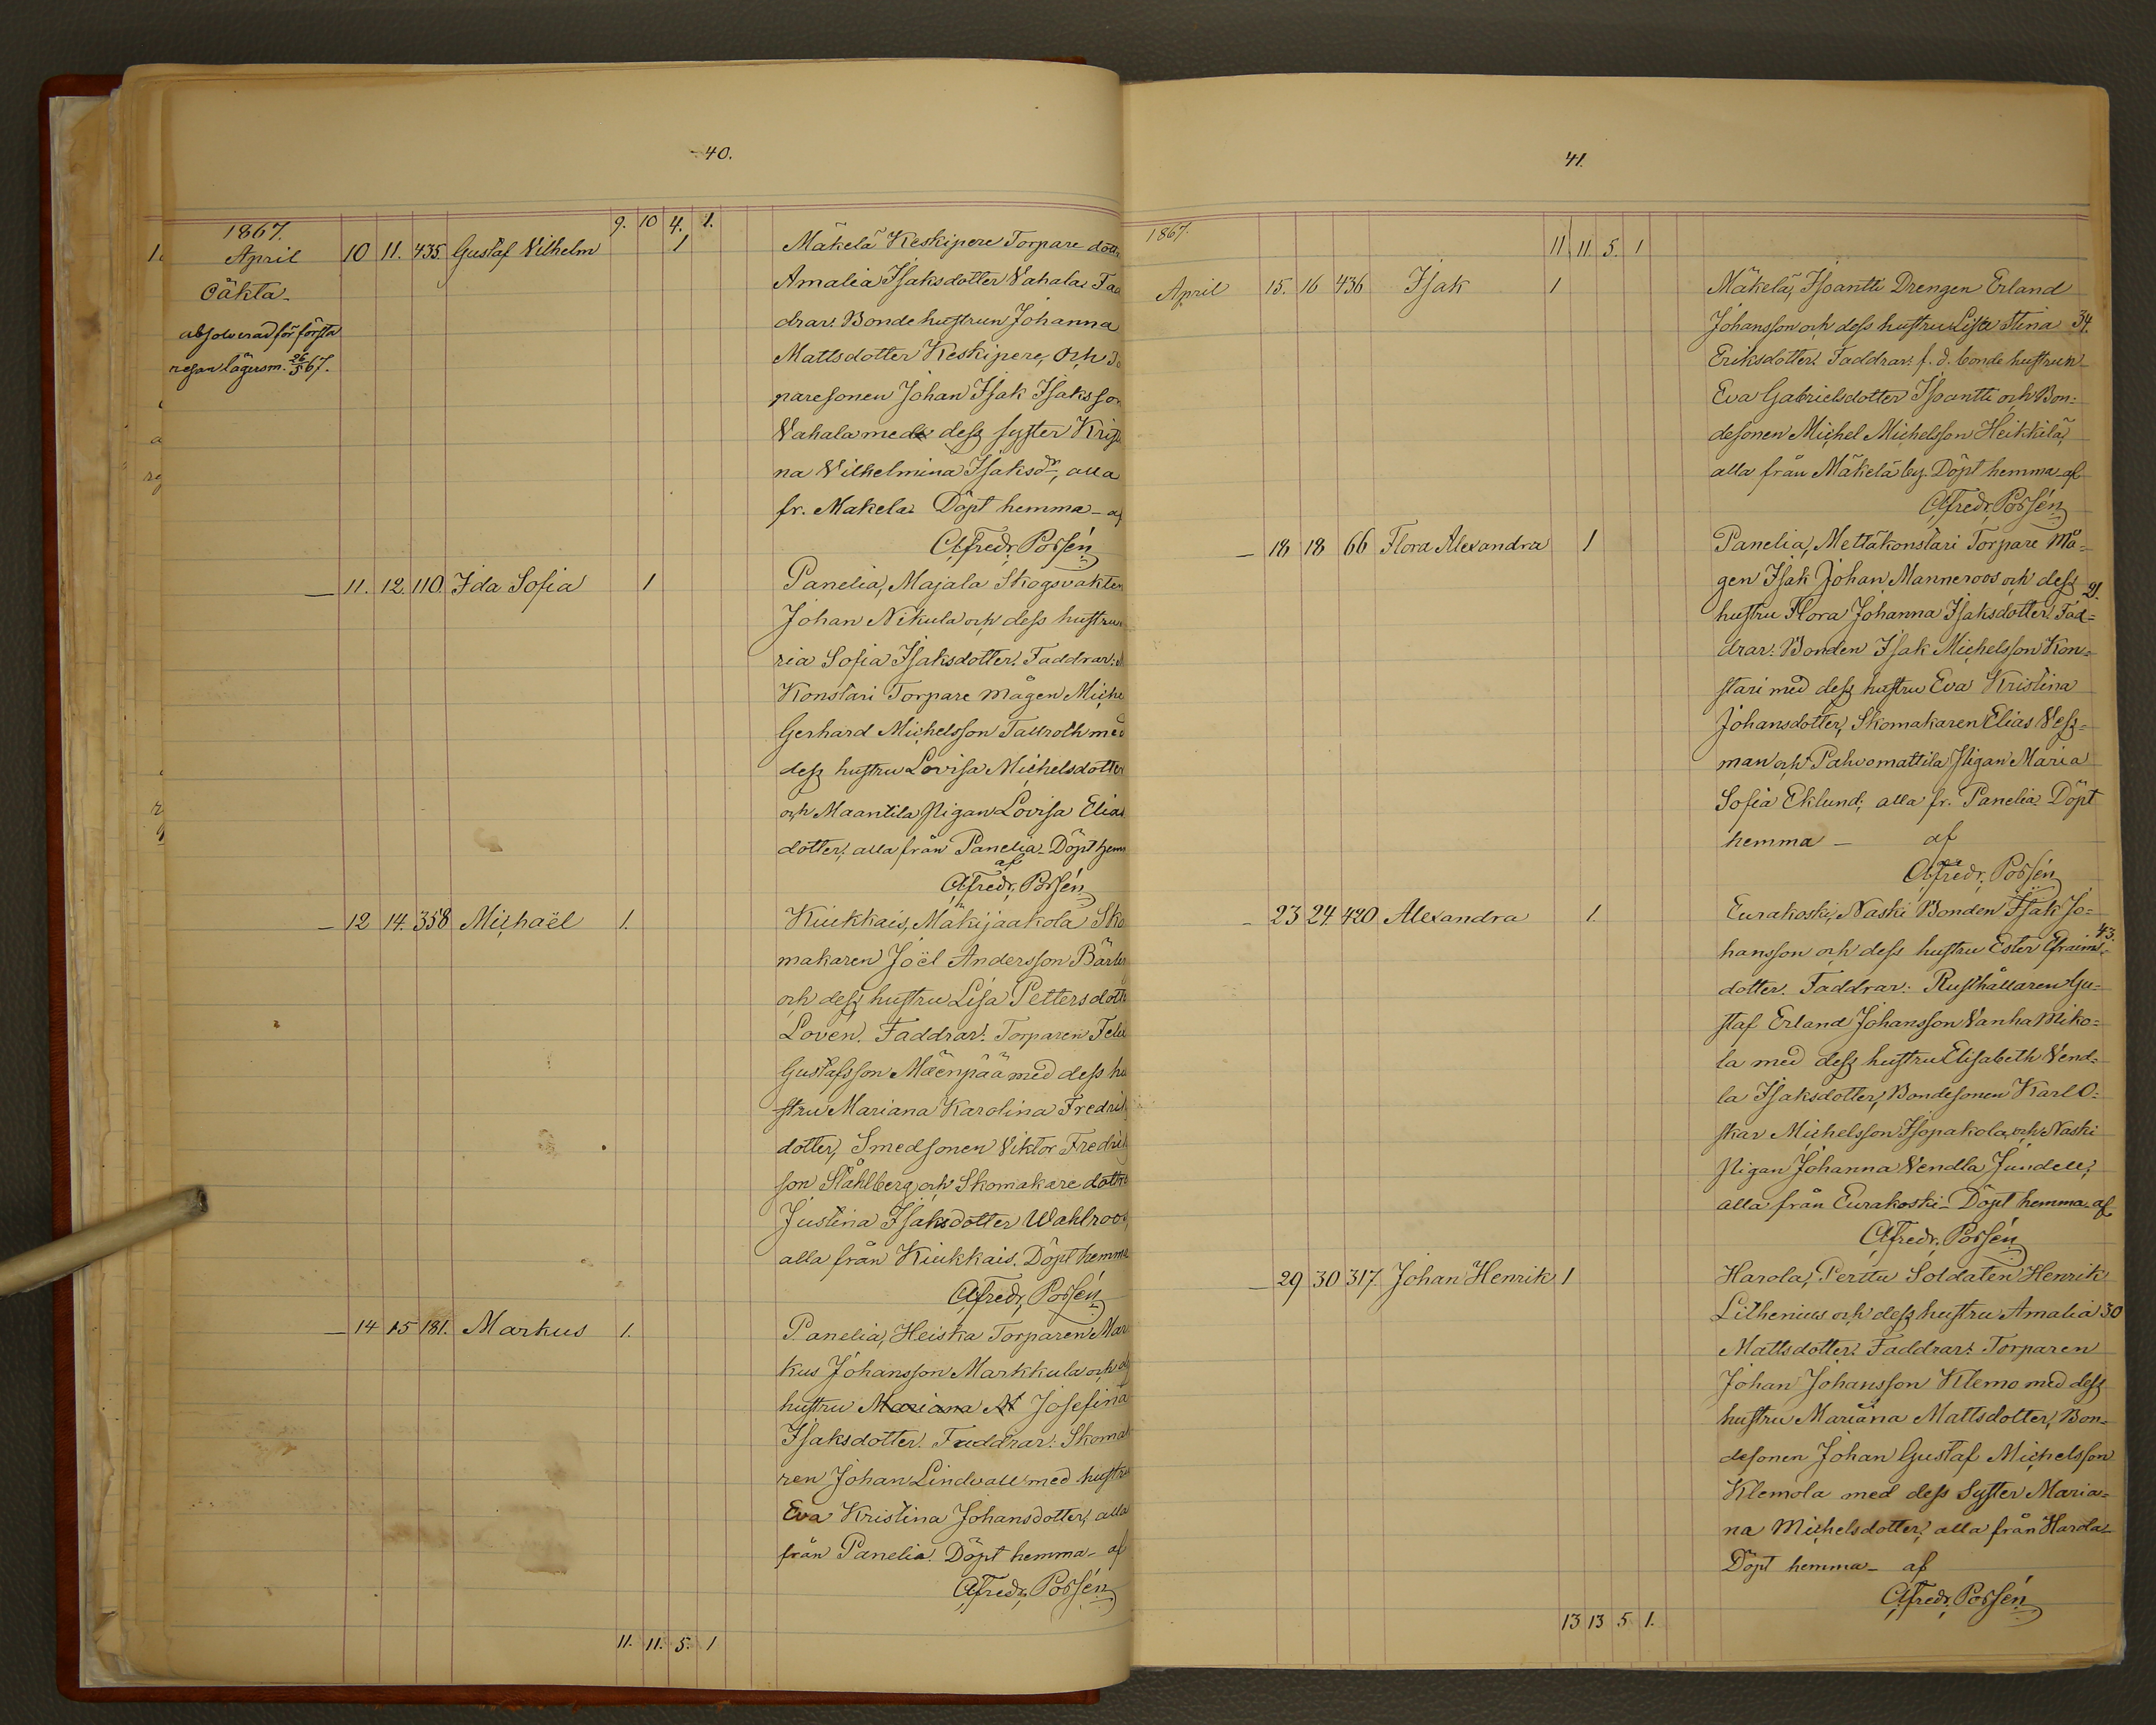 40.
1867.
9. 10 4. 1.
April 10 11. 435. Gustaf Vilhelm 1 Mäkelä Keskipere Torpare dott
Oäkta Amalia Isaksdotter Vahala. Fad
absolverad för första drar: Bondehustrun Johanna
resan lägersm. 26/5 67. Mattsdotter Keskipere, och
paresonen Johan Isak Isaksson
Vahala med dess syster Kristi
na Vilhelmina Isaksdr, alla
fr. Makela. Döpt hemma af
Alfredr. Possén
— 11. 12. 110. Ida Sofia 1 Panelia, Majala Skogsvakten
Johan Nikula och dess hustru
ria Sofia Isaksdotter. Faddrar:
Konstari Torpare mågen Miche
Gerhard Michelsson Tallroth med
dess hustru Lovisa Michelsdotter
och Maantila Pigan Lovisa Elias
dotter, alla från Panelia. Döpt hem
af
Alfredr. Possén
— 12 14. 358 Michaël 1. Kiukkais, Mäkijaakola Sko
makaren Joël Andersson Bärlu
och dess hustru Lisa Pettersdott
Loven. Faddrar: Torparen Felix
Gustafsson Mäenpää med dess hu
stru Mariana Karolina Fredrik
dotter, Smedsonen Viktor Fredrik
son Ståhlberg och Skomakare dotte
Justina Isaksdotter Wahlroos,
alla från Kiukkais. Döpt hemma
Alfredr. Possén
— 14 15 181. Markus 1. Panelia, Heiska Torparen Mar
kus Johansson Markkula och
hustru Mariana M Josefina
Isaksdotter. Faddrar: Skoma
ren Johan Lindvall med hustru
Eva Kristina Johansdotter, alla
från Panelia. Döpt hemma af
Alfredr. Possén
11. 11. 5. 1
41.
1867.
11 11. 5. 1
April 15. 16 436 Isak 1 Mäkelä, Isoantti Drengen Erland
Johansson och dess hustru Lisa Stina 34.
Eriksdotter. Faddrar: f. d. bonde hustrun
Eva Gabrielsdotter Isoantti och Bon=
desonen Michel Michelsson Heikkilä,
alla från Mäkelä by. Döpt hemma af
Alfredr. Possén
— 18 18 66 Flora Alexandra 1 Panelia, Mettäkonstari Torpare Må=
gen Isak Johan Manneroos och dess 21.
hustru Flora Johanna Isaksdotter. Fad=
drar: Bonden Isak Michelsson Kon=
stari med dess hustru Eva Kristina
Johansdotter, Skomakaren Elias Vess=
man och Pahvomattila Pigan Maria
Sofia Eklund; alla fr. Panelia. Döpt
hemma — af
Alfredr. Possén
— 23 24. 420. Alexandra 1. Eurakoski, Naski Bonden Isak Jo=
hansson och dess hustru Ester Efraims= 43.
dotter. Faddrar: Rusthållaren Gu=
staf Erland Johansson Vanha Miko=
la med dess hustru Elisabeth Vend=
la Isaksdotter, Bondesonen Karl O=
skar Michelsson Isopakola, och Naski
Pigan Johanna Vendla Jundell,
alla från Eurakoski. Döpt hemma af
Alfredr. Possén
— 29 30 317. Johan Henrik 1 Harola, Perttu Soldaten Henrik
Lithenius och dess hustru Amalia 30
Mattsdotter. Faddrar: Torparen
Johan Johansson Klemo med dess
hustru Mariana Mattsdotter, Bon=
desonen Johan Gustaf Michelsson
Klemola med dess syster Maria=
na Michelsdotter, alla från Harola.
Döpt hemma af
Alfredr. Possén
13 13 5 1.